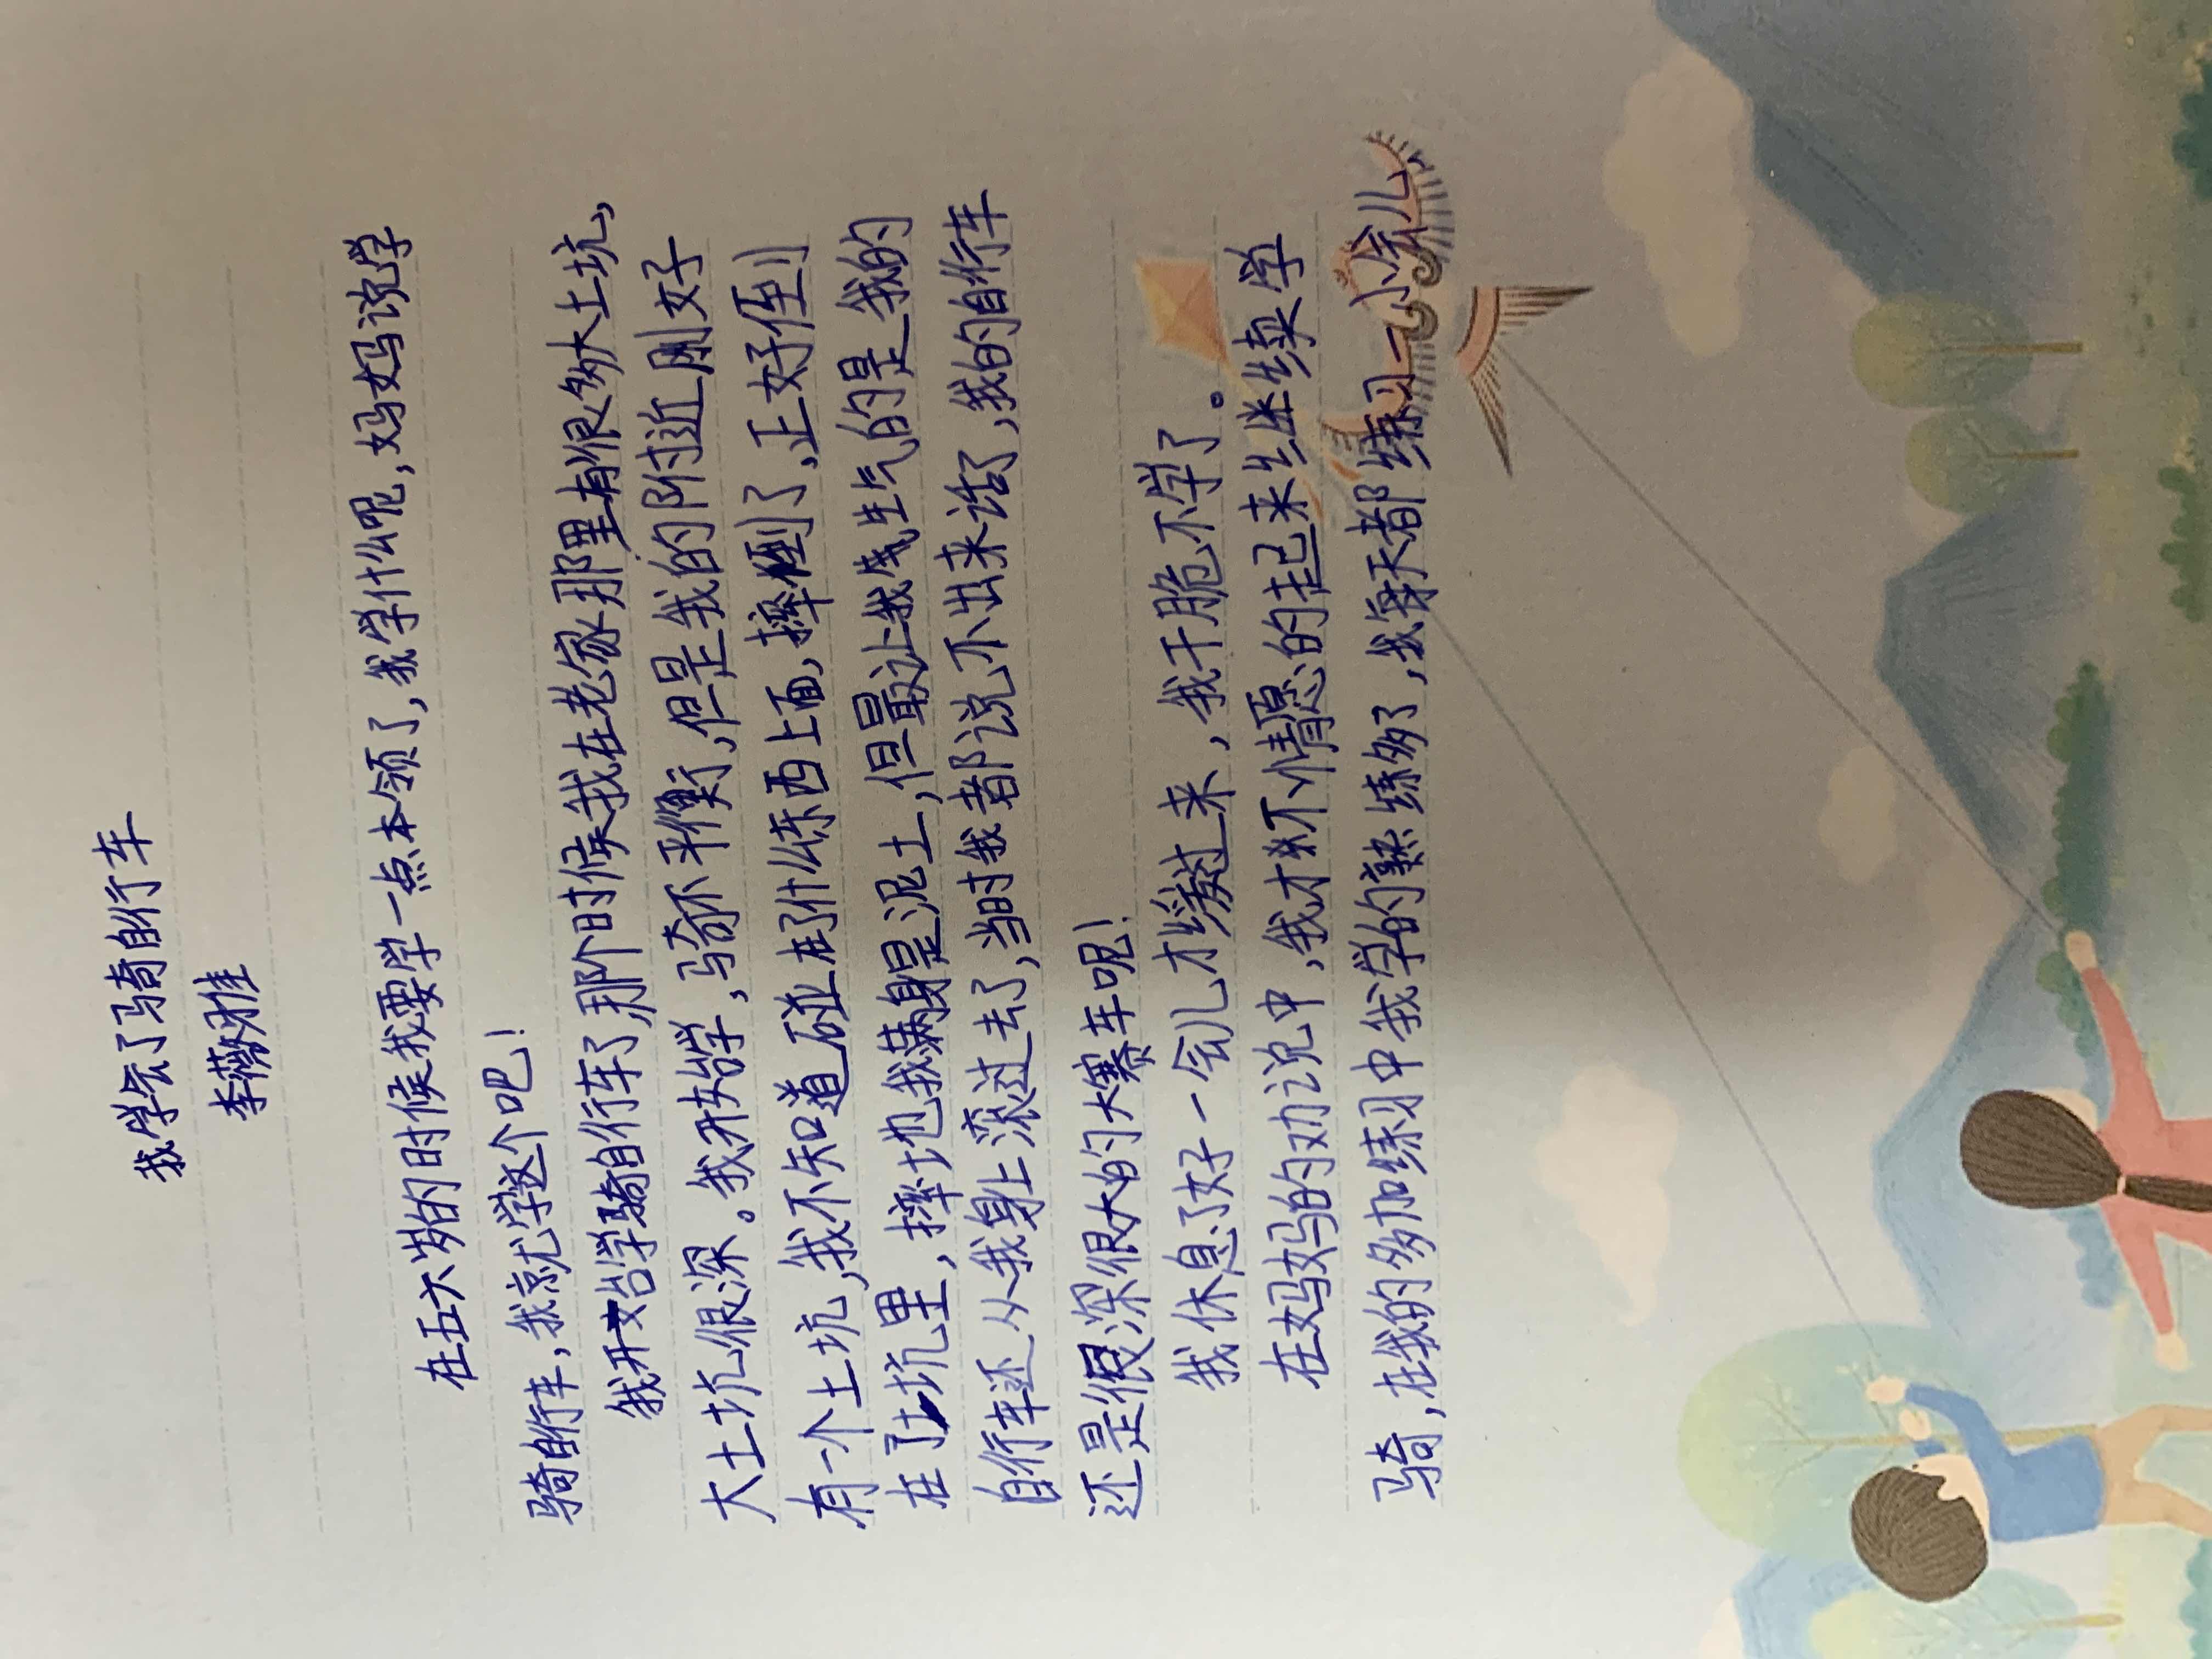 我学会了骑自行车
李燕雅佳
在五六岁的时候我要学一点本领了,我学什么呢,妈妈说学
骑自行车,我就学这个吧!
我开始学骑自行车了那个时候我在老家那里有很多大土坑,
大土坑很深。我开始学,骑不平衡,但是我的附近刚好
有一个土坑,我不知道碰在了什么东西上面,摔倒了,正好倒
在了土坑里,摔地我满身是泥土,但最让我生气的是我的
自行车还从我身上滚过去了,当时我都说不出来话了,我的自行车
还是很深很大的大赛车呢!
我休息了好一会儿才缓过来,我干脆不学了。
在妈妈的劝说中,我才不情愿的起来继续学
骑,在我的多加练习中我学的熟练多了,我每天都练习一小会儿,